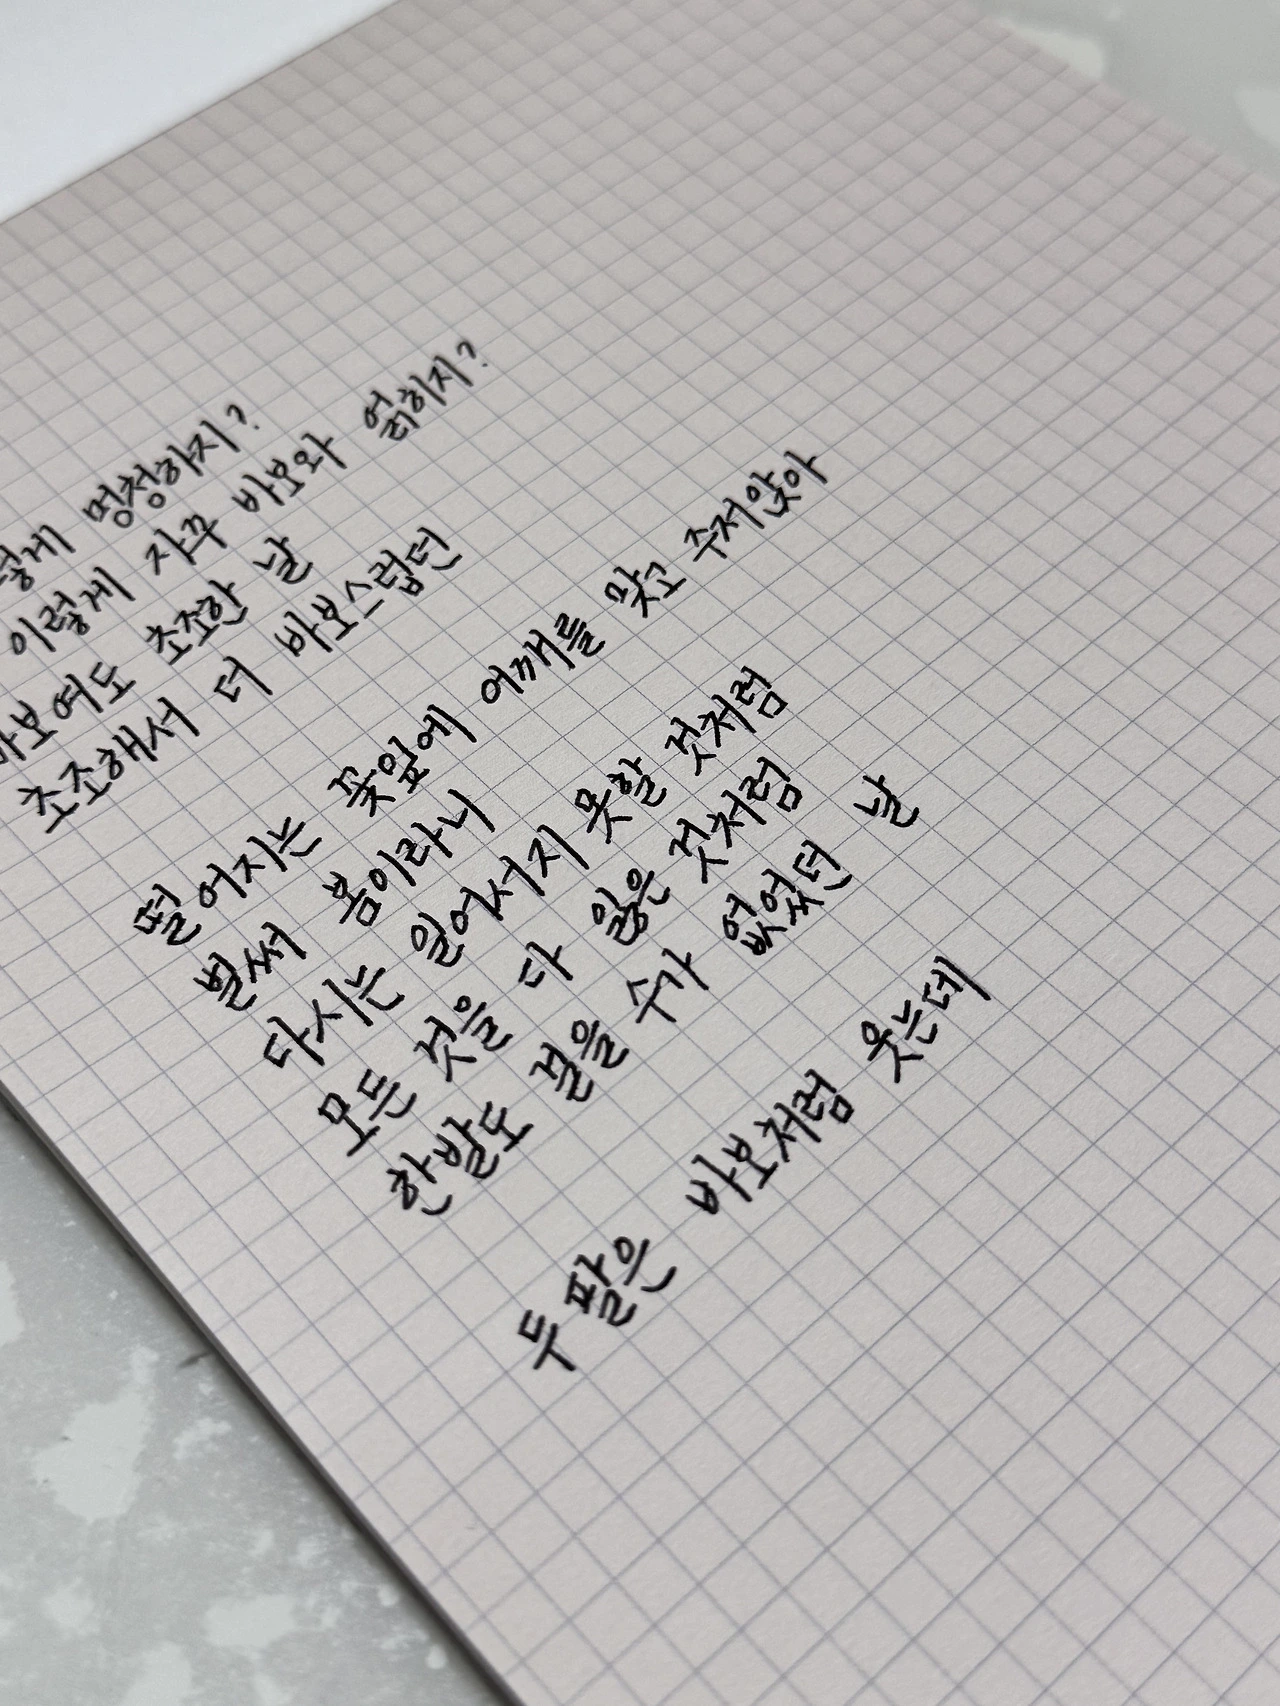 멍청하지?
이렇게 자꾸 바보와 얽히지?
바보여도 초조한 날
초조해서 더 바보스럽던
떨어지는 꽃잎에 어깨를 맞고 주저앉아
벌써 봄이라니
다시는 일어서지 못할 것처럼
모든 것을 다 잃은 것처럼
한발도 걸을 수가 없었던 날
두 팔은 바보처럼 웃는데